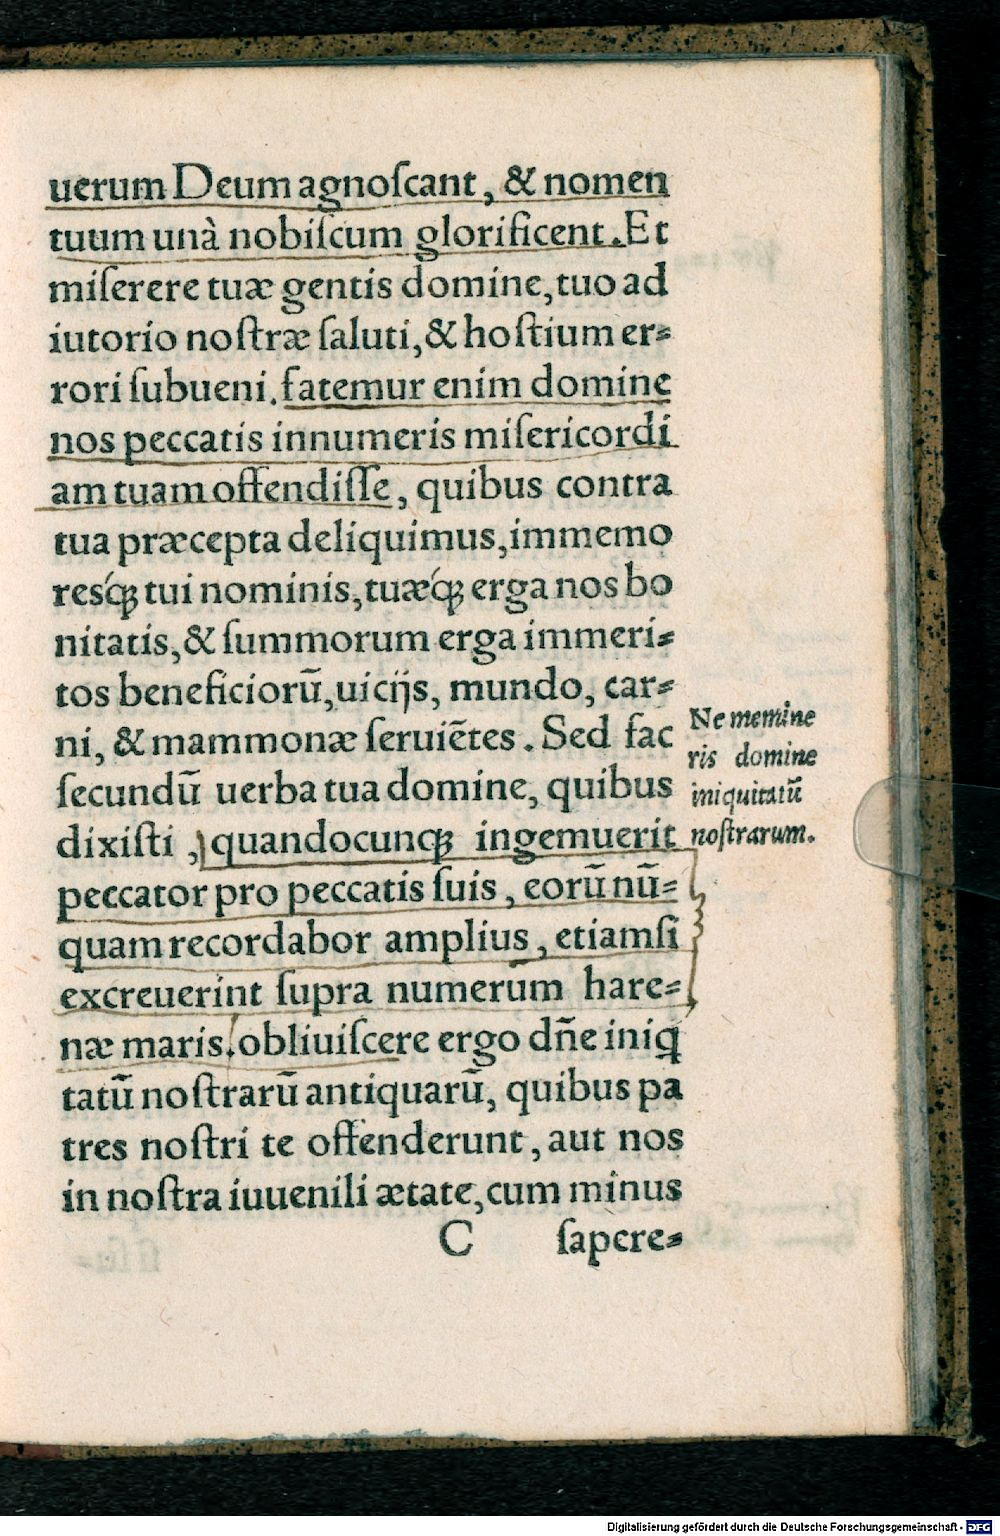 uerum Deum agnoſcant, & nomen
tuum unà nobiſcum glorificent. Et
miſerere tuæ gentis domine, tuo ad
iutorio noſtræ ſaluti, & hoſtium er⸗
rori ſubueni. fatemur enim domine
nos peccatis innumeris miſericordi
am tuam offendiſſe, quibus contra
tua præcepta deliquimus, immemo
resq́ꝫ tui nominis, tuæq́ꝫ erga nos bo
nitatis, & ſummorum erga immeri⸗
tos beneficiorū, uicijs, mundo, car⸗
ni, & mammonæ ſeruiētes. Sed fac
ſecundū uerba tua domine, quibus
dixiſti, quandocunqꝫ ingemuerit
peccator pro peccatis ſuis, eorū nū⸗
quam recordabor amplius, etiamſi
excreuerint ſupra numerum hare⸗
næ maris. obliuiſcere ergo dñe iniꝗ
tatū noſtrarū antiquarū, quibus pa
tres noſtri te offenderunt, aut nos
in noſtra iuuenili ætate, cum minus
C ſapere⸗
Ne memine
ris domine
iniquitatū
noſtrarum.
Digitalisierung gefördert durch die Deutsche Forschungsgemeinschaft - DFG